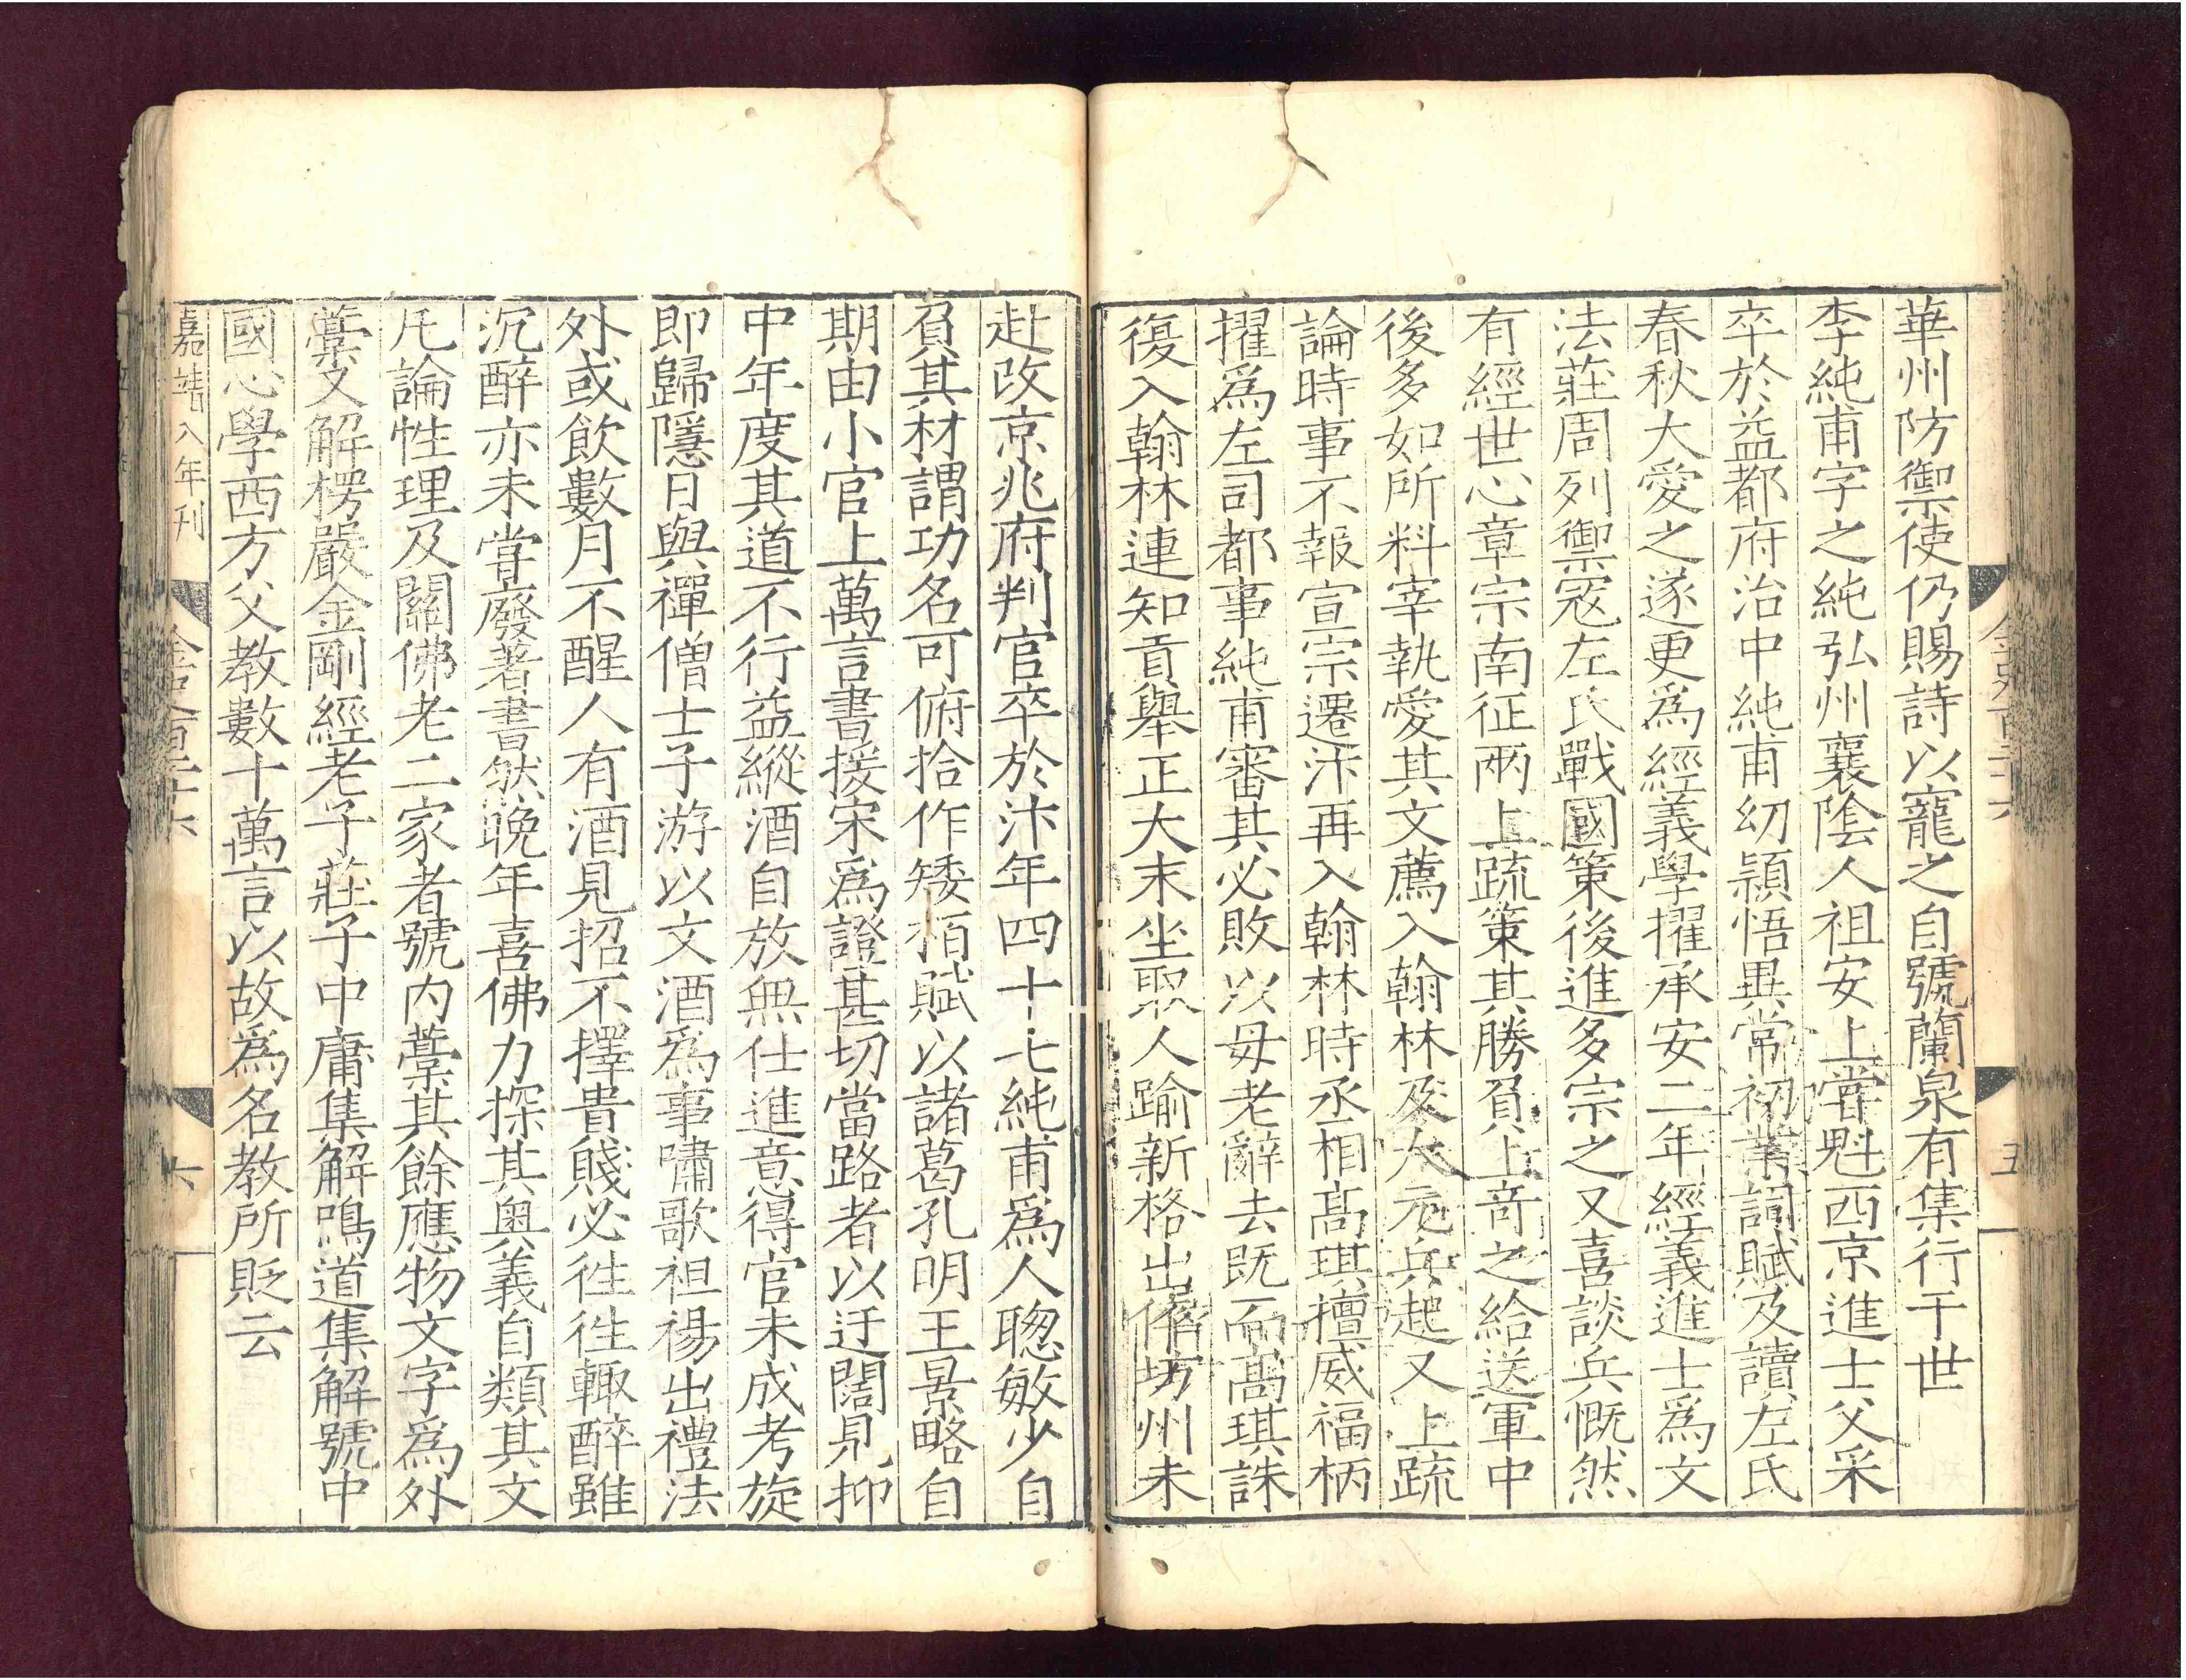 華州防禦使仍賜詩以寵之自號蘭泉有集行于世
李純甫字之純弘州襄陰人祖安上嘗魁西京進士父采
卒於益都府治中純甫幼穎悟異常初業詞賦及讀左氏
春秋大愛之遂更爲經義學擢承安二年經義進士爲文
法莊周列禦寇左氏戰國策後進多宗之又喜談兵慨然
有經世心章宗南征兩上疏策其勝負上竒之給送軍中
後多如所料宰執愛其文薦入翰林及大元兵起又上疏
論時事不報宣宗遷汴再入翰林時丞相高琪擅威福柄
擢爲左司都事純甫審其必敗以母老辭去既而高琪誅
復入翰林連知貢舉正大末坐取人踰新格出倅坊州未
五
赴改京兆府判官卒於汴年四十七純甫爲人聰敏少自
負其材謂功名可俯拾作矮栢賦以諸葛孔明王景略自
期由小官上萬言書援宋爲證甚切當路者以迂闊見抑
中年度其道不行益縱酒自放無仕進意得官未成考旋
即歸隱日與禪僧士子游以文酒爲事嘯歌袒裼出禮法
外或飲數月不醒人有酒見招不擇貴賤必徃徃輙醉雖
沉醉亦未嘗廢著書然晚年喜佛力探其奥義自類其文
凡論性理及關佛老二家者號内藁其餘應物文字爲外
藁又解楞嚴金剛經老子莊子中庸集解鳴道集解號中
國心學西方父教數十萬言以故爲名教所貶云
嘉靖八年刊
金史百二十六
六